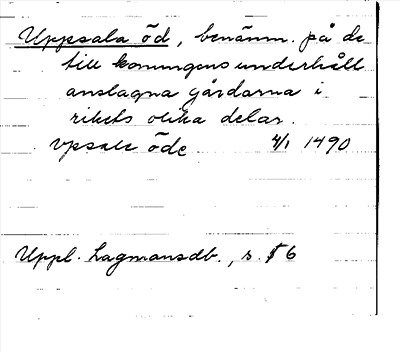 Uppsala öd, benämn. på de
till konungens underhåll
anslagna gårdarna i
rikets olika delar.
vpsale öde 4/1 1490
Uppl. Lagmansdb., s. 56